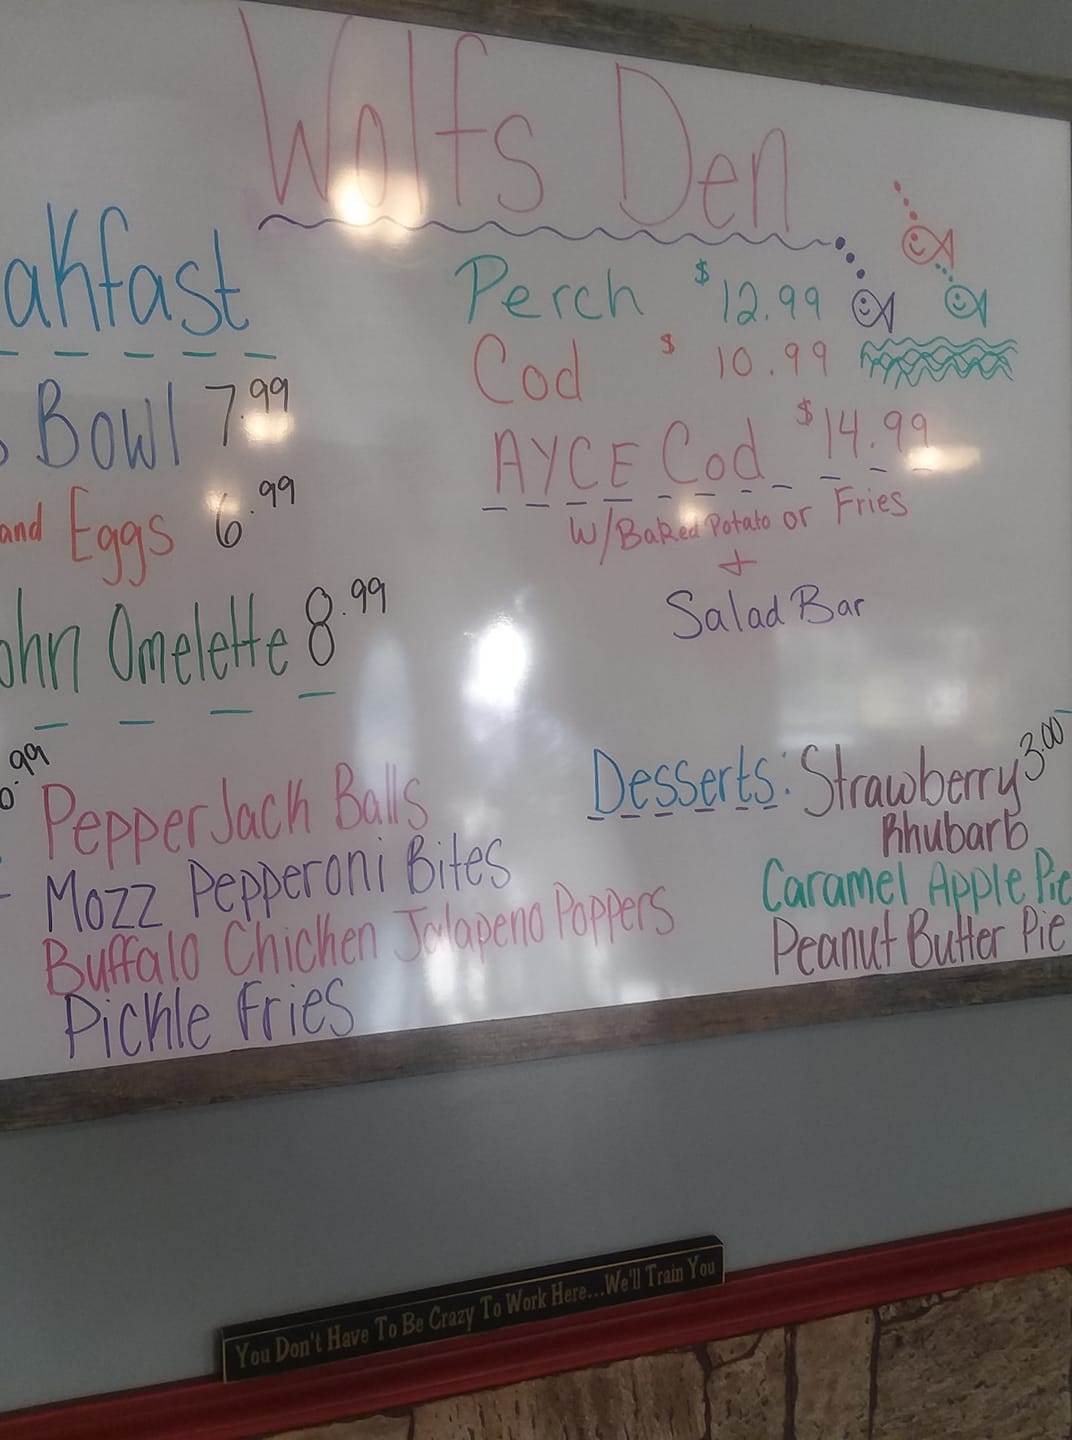 Wolfs Den
akfast
Bowl 7.99
and Eggs 6.99
ohn Omelette 8.99
.99
Pepper Jack Balls
Mozz Pepperoni Bites
Buffalo Chicken Jalapeno Poppers
Pickle Fries
Perch $12.99
Cod $10.99
AYCE Cod $14.99
W/Baked Potato or Fries
+
Salad Bar
Desserts: Strawberry 3.00
Rhubarb
Caramel Apple Pie
Peanut Butter Pie
You Don't Have To Be Crazy To Work Here...We'll Train You